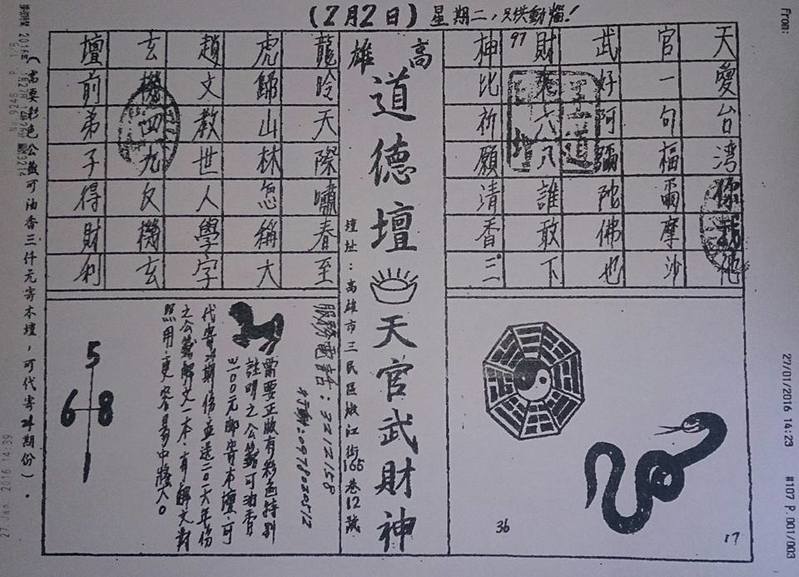 (2月2日) 星期二，只供動腦！
From:
27/01/2016 14:23
#107 P.001/003
天愛台湾你我他
官一句福爾摩沙
武好阿彌陀佛也
97
財六八誰敢下
神比祈願清香三
高雄
道德壇
天官武財神
壇址：高雄市三民區江街巷12號
龍吟天際嘯春至
虎歸山林怎稱大
趙文教世人學字
玄機四九反機玄
壇前弟子得財利
36
17
服務電話：3212158
行動：0978020512
需要正版有彩色特別
註明之公籤可油香
三00元郵寄本壇，可
代寄期份並送二0一六年份
之公籤解文一本，有解文對
照用，更容易中獎
5
6 8
1
(需要彩色公籤可油香三仟元寄本壇，可代寄期份)。
27 Jan 2016 14:39